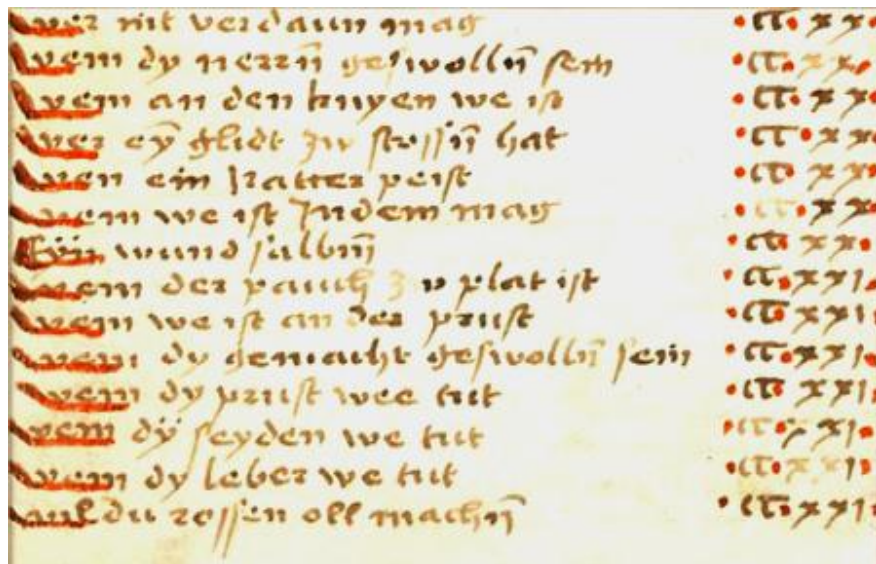 wer nit verdaun mag ·CC·xx·
wem dy nerrn̄ geswolln̄ sein ·CC·xx·
wem an den knyen we ist ·CC·xx
wer eyn̄ glidt zw stossn̄ hat ·CC·xx
wen ein natter peist ·CC·xx
wem we ist Jndem mag ·CC·xx
Eyn wund salbnn̄ ·CC·xx·
wem der pauch zv plat ist ·CC·xxi
wem we ist an der prust ·CC·xxi
wem dy gemacht geswolln̄ sein ·CC·xxi
wem dy prust wee tut ·CC·xxi
wem dÿ seyden we tut ·CC·xxi
wem dy leber we tut ·CC·xxi
wild du rossen oll machn̄ ·CC·xxi